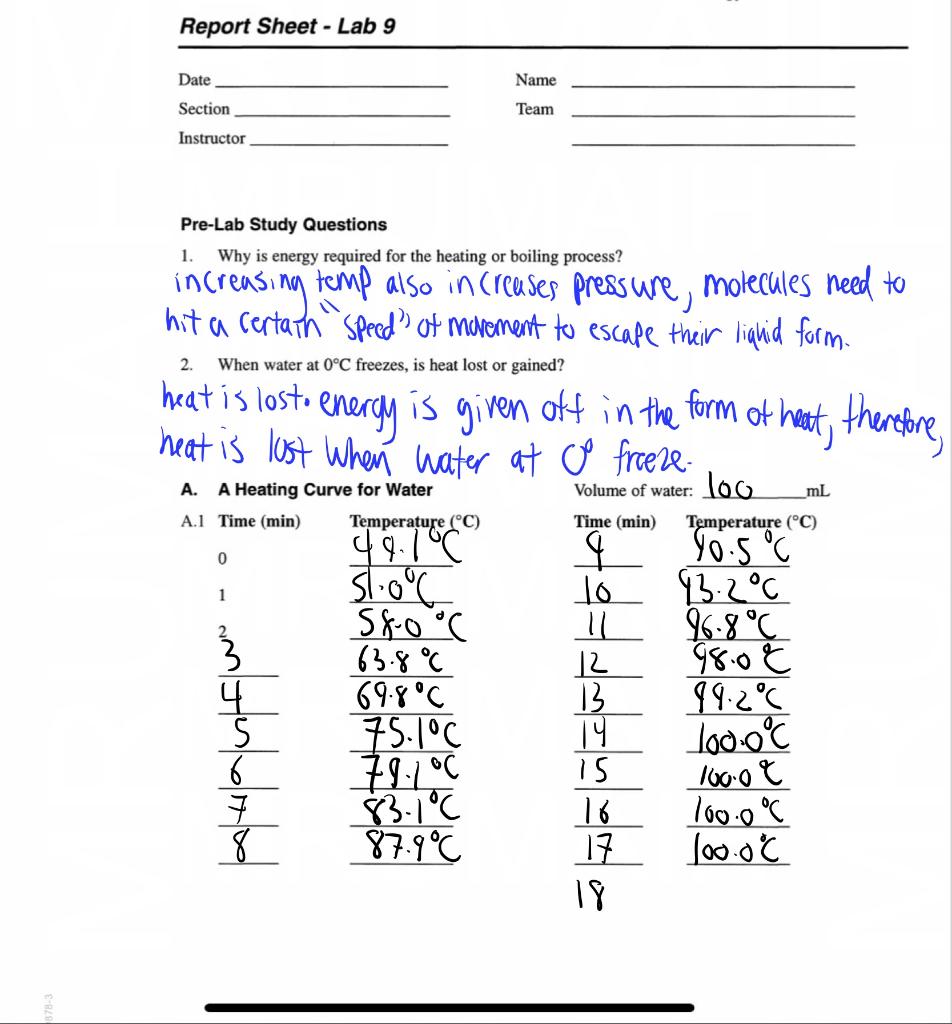 Report Sheet - Lab 9
Date Name
Section Team
Instructor
Pre-Lab Study Questions
1. Why is energy required for the heating or boiling process?
increasing temp also increases pressure, molecules need to
hit a certain "speed" of movement to escape their liquid form.
2. When water at 0°C freezes, is heat lost or gained?
heat is lost. energy is given off in the form of heat, therefore,
heat is lost when water at 0° freeze.
A. A Heating Curve for Water Volume of water: 100 mL
A.1 Time (min) Temperature (°C) Time (min) Temperature (°C)
0 49.1°C 9 90.5 °C
1 51.0°C 10 93.2°C
2 58.0 °C 11 96.8°C
3 63.8 °C 12 98.0 °C
4 69.8°C 13 99.2°C
5 75.1°C 14 100.0°C
6 79.1°C 15 100.0 °C
7 83.1°C 16 100.0°C
8 87.9°C 17 100.0°C
18